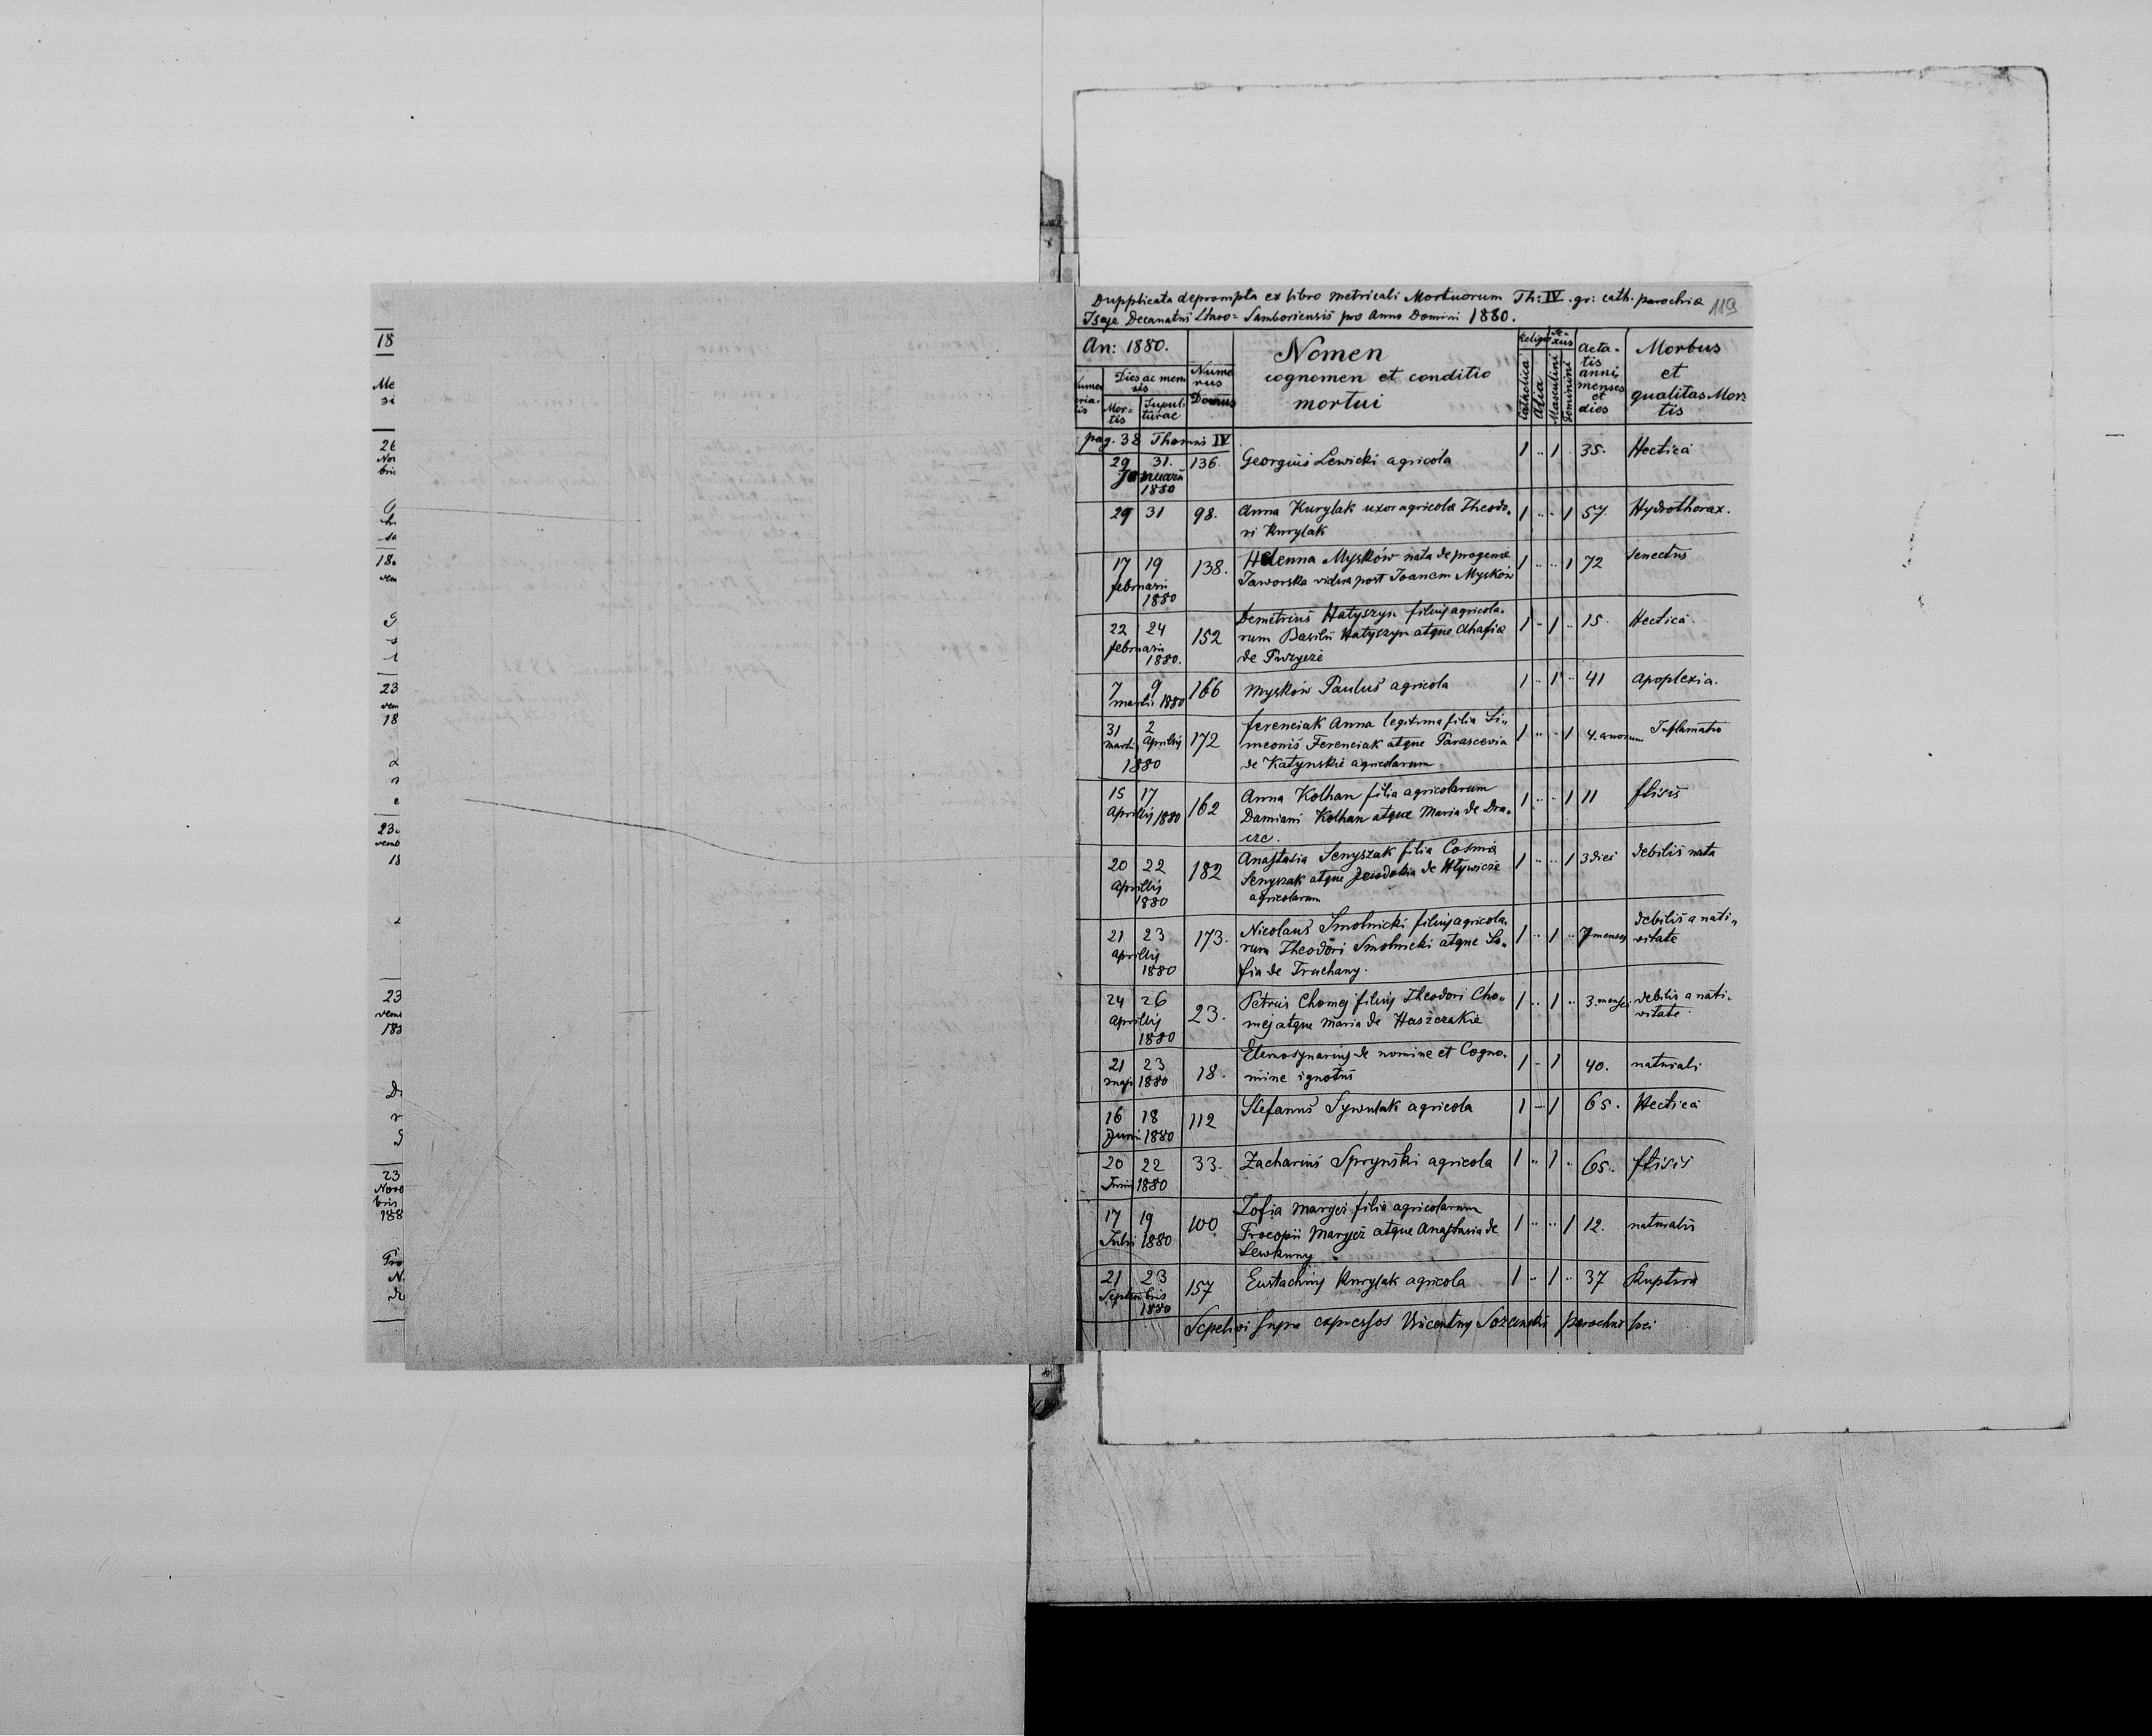 Dupplicata deprompta ex libro metricali Mortuorum Th: IV. gr: cath. parochiæ 119
Isaje Decanatus Staro= Samboriensis pro Anno Domini 1880.
An: 1880.
Numerus Domus
Nomen
cognomen et conditio
mortui
Religio
Sexus
Catholica
Alia
Masculini
Feminini
Aeta-
tis
anni
menses
et
dies
Morbus
et
qualitas Mor-
tis
Dies ac mensis
Mor-
tis
Sepul-
turae
pag. 38 Thomus IV
29 31. 136. Georgius Lewicki agricola 1 .. 1 . 35. Hectica
Januarii
1880
29 31 98. Anna Kurylak uxor agricolæ Theodo- 1 .. . 1 57. Hydrothorax.
ri Kurylak
17 19 138. Helenna Mysków nata de progenie 1 .. .. 1 72 Senectus
februarii Jaworska vidua post Joanem Mysków
1880
22 24 152 Demetrius Hatyszyn filius agricola- 1 .. 1 .. 15. Hectica.
februarii rum Basilii Hatyszyn atque Ahafia
1880. de
7 9 166 Mysków Paulus agricola 1 .. 1 .. 41 Apoplexia.
martii 1880
31 2 172 Ferenciak Anna legitima filia Si- 1 .. .. 1 4. annorum Inflamatio
martii Aprilis meonis Ferenciak atque Parascevia
1880 de Katynskie agricolarum
15 17 162 Anna Kolhan filia agricolarum 1 .. .. 1 11 ftisis
Aprilis 1880 Damiani Kolhan atque Maria de Dra-
20 22 182 Anastasia Senyszak filia Cosmæ 1 .. .. 1 3 dies debilis nata
Aprillis Senyszak atque de
1880 agricolarum
21 23 173. Nicolaus Smolnicki filius agricola- 1 .. 1 .. 7 menses debilis a nati-
Aprillis rum Theodori Smolnicki atque So- vitate
1880 fia de Truchany.
24 26 23. Petrus Chomej filius Theodori Cho- 1 .. 1 .. 3. menses debilis a nati-
Aprillis mej atque Maria de vitate
1880
21 23 18. Elemosynarius de nomine et Cogno- 1 .. 1 40. naturali
maji 1880 mine ignotus
16 18 112 Stefanus Sywulak agricola 1 .. 1 65. Hectica
Juni 1880
20 22 33. Zacharius Sprynski agricola 1 .. 1 .. 65. ftisis
Junii 1880
17 19 100 Zofia Maryez filia agricolarum 1 .. .. 1 12. naturalis
Julii 1880 Procopii Maryez atque Anastasia de
Lewkuny
21 23 157 Eustachius Kurylak agricola 1 .. 1 .. 37 Ruptura
Septembris
1880
Sepelivi supra expressos Vincentius parochus loci